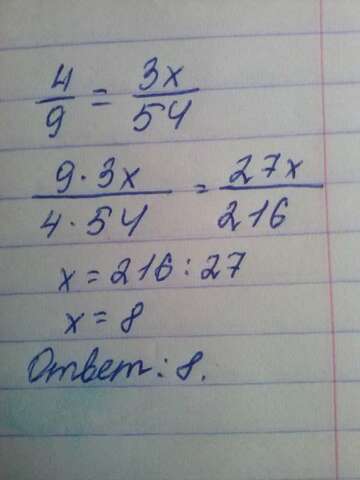 4/9 = 3x/54
9·3x/4·54 = 27x/216
x = 216 : 27
x = 8
Ответ: 8.